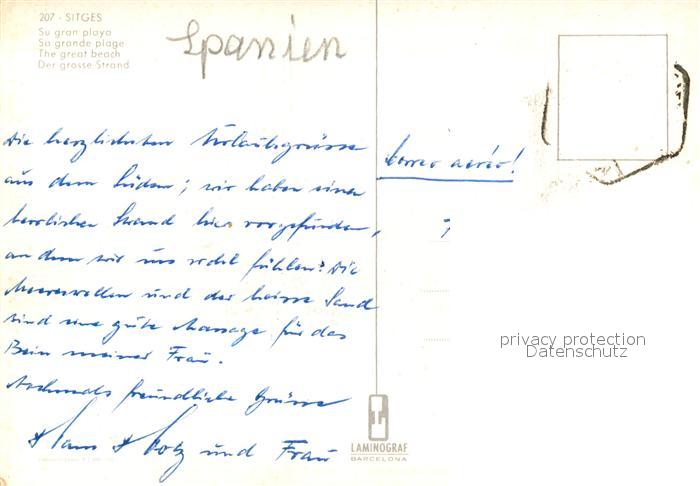 207 - SITGES
Su gran playa
Sa grande plage
The great beach
Der grosse Strand
Spanien
Die herzlichsten Urlaubsgrüsse
aus dem Süden; wir haben einen
herrlichen Strand hier vorgefunden,
an dem wir uns wohl fühlen! Die
Meereswellen und der heisse Sand
sind eine gute Massage für das
Bein meiner Frau.
Nochmals freundliche Grüsse
Hans und Frau
correo aéreo!
privacy protection
Datenschutz
LAMINOGRAF
BARCELONA